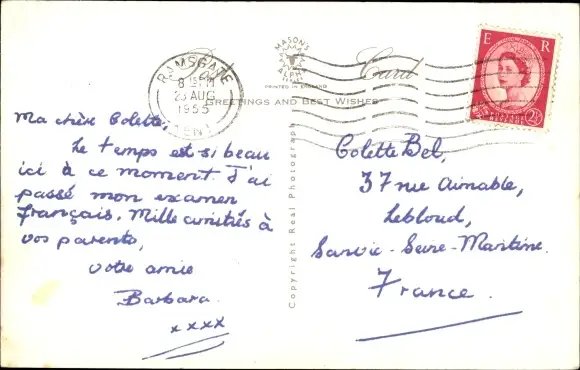 Post Card
MASON'S
ALPHA
PRINTED IN ENGLAND
GREETINGS AND BEST WISHES
RAMSGATE
23 AUG
1955
KENT
E R
2½
Copyright Real Photograph
Ma chère Colette,
Le temps est si beau
ici à ce moment. J'ai
passé mon examen
français. Mille amitiés à
vos parents,
votre amie
Barbara.
xxxx
Colette Bel,
37 rue Aimable,
Lebloud,
Seine-Maritime.
France.